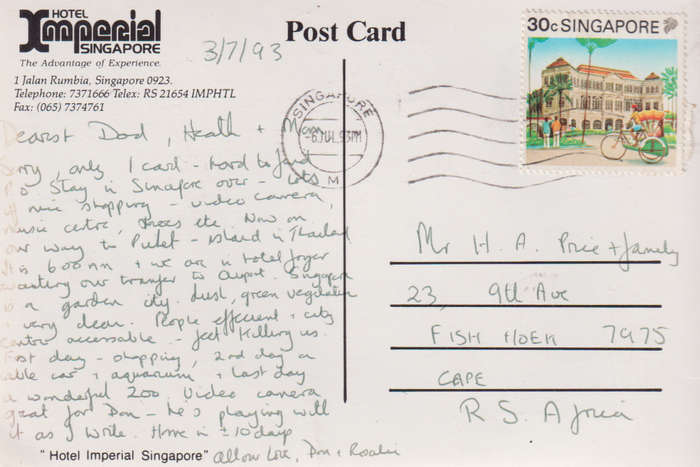 HOTEL
Imperial
SINGAPORE
The Advantage of Experience.
1 Jalan Rumbia, Singapore 0923.
Telephone: 7371666 Telex: RS 21654 IMPHTL
Fax: (065) 7374761
3/7/93
Post Card
30c SINGAPORE
SINGAPORE
6 JUL 93 PM
M
Dearest Dad, Heath + M
Sorry, only 1 card - hard to find
P.O Stay in Singapore over - lots
of nice shopping - video camera,
music centre, shoes etc. Now on
our way to Puket - island in Thailand
It is 6 00 AM + we are in hotel foyer
wanting our transfer to Airport. Singapore
is a garden city. Lush, green vegetation
+ very clean. People efficient + city
centre accessable - feet killing us.
First day - shopping, 2nd day on
cable car + aquarium + last day
a wonderful Zoo. Video camera
great for Don - he's playing with
it as I write. Home in ± 10 days
"Hotel Imperial Singapore" all our love, Don + Rosalie
Mr H. A. Price + family
23, 9th Ave
FISH HOEK 7975
CAPE
R S. Africa